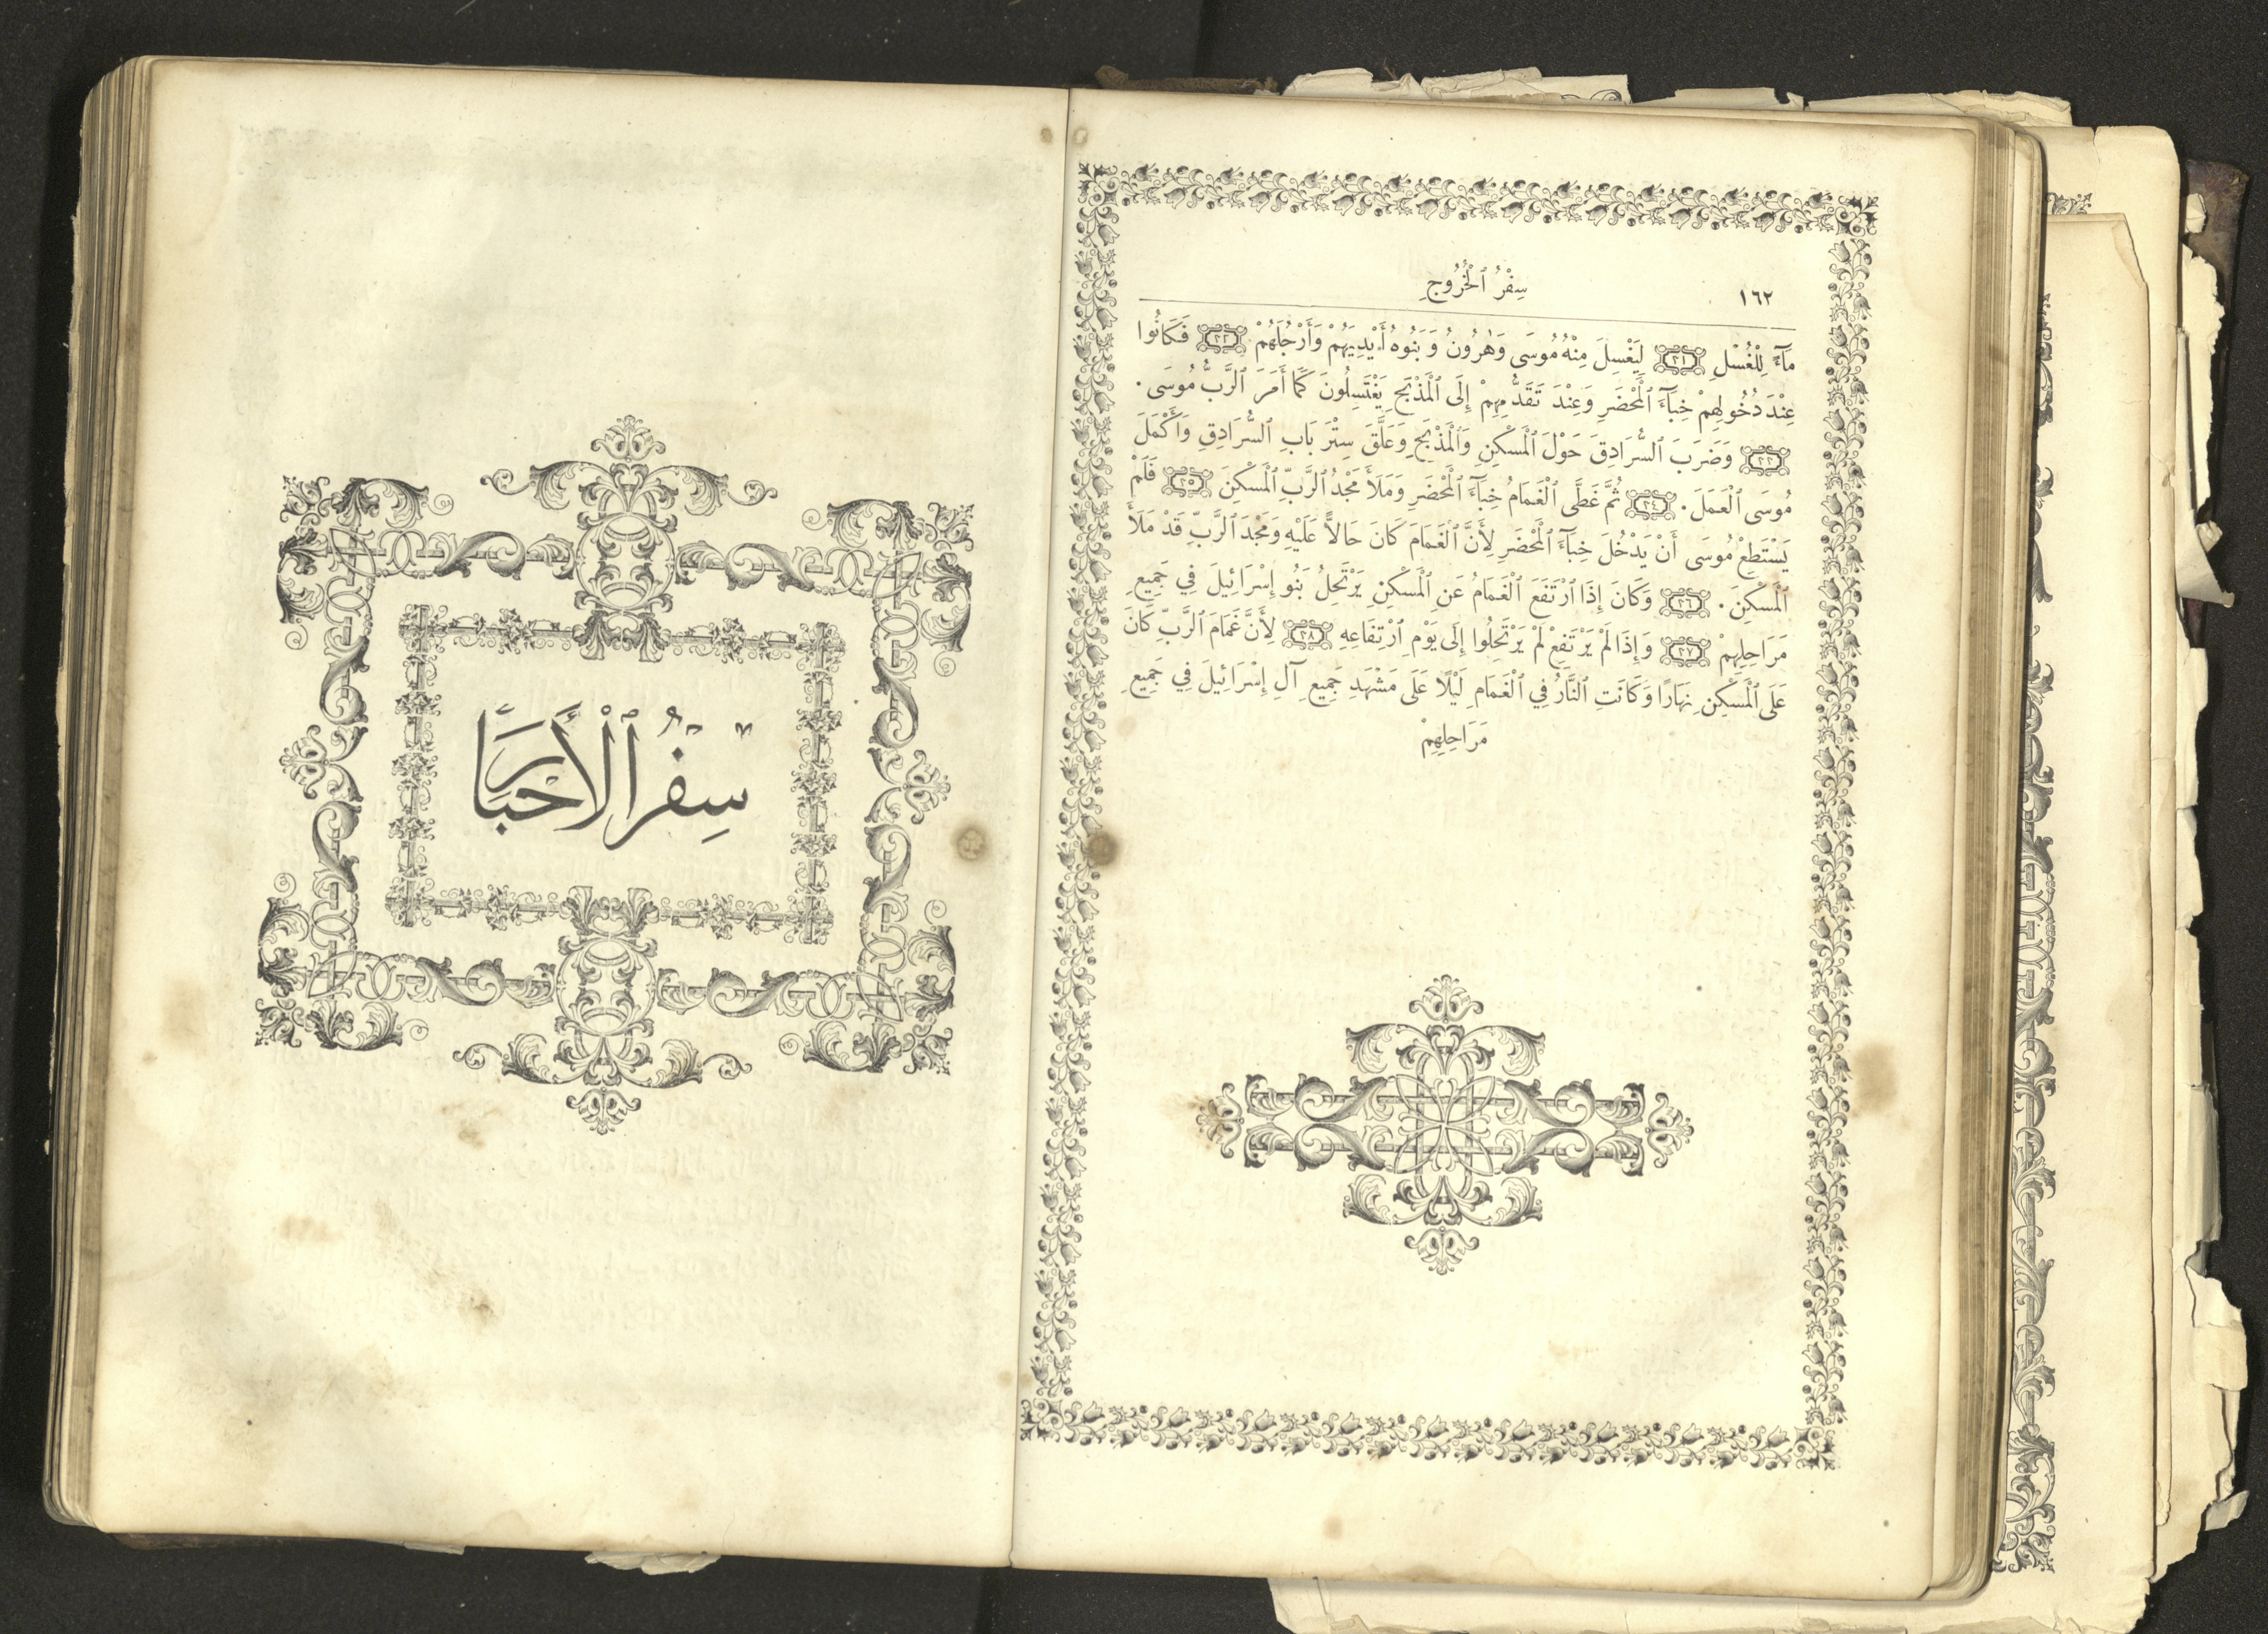 ١٦٢
سِفْرُ ٱلْخُرُوجِ
مَآءً لِلْغُسْلِ ٣١ لِيَغْسِلَ مِنْهُ مُوسَى وَهٰرُونُ وَبَنُوهُ أَيْدِيَهُمْ وَأَرْجُلَهُمْ ٣٢ فَكَانُوا
عِنْدَ دُخُولِهِمْ خِبَآءَ ٱلْمَحْضَرِ وَعِنْدَ تَقَدُّمِهِمْ إِلَى ٱلْمَذْبَحِ يَغْتَسِلُونَ كَمَا أَمَرَ ٱلرَّبُّ مُوسَى .
٣٣ وَضَرَبَ ٱلسُّرَادِقَ حَوْلَ ٱلْمَسْكِنِ وَٱلْمَذْبَحِ وَعَلَّقَ سِتْرَ بَابِ ٱلسُّرَادِقِ وَأَكْمَلَ
مُوسَى ٱلْعَمَلَ . ٣٤ ثُمَّ غَطَّى ٱلْغَمَامُ خِبَآءَ ٱلْمَحْضَرِ وَمَلَأَ مَجْدُ ٱلرَّبِّ ٱلْمَسْكِنَ ٣٥ فَلَمْ
يَسْتَطِعْ مُوسَى أَنْ يَدْخُلَ خِبَآءَ ٱلْمَحْضَرِ لِأَنَّ ٱلْغَمَامَ كَانَ حَالًّا عَلَيْهِ وَمَجْدَ ٱلرَّبِّ قَدْ مَلَأَ
ٱلْمَسْكِنَ . ٣٦ وَكَانَ إِذَا ٱرْتَفَعَ ٱلْغَمَامُ عَنِ ٱلْمَسْكِنِ يَرْتَحِلُ بَنُو إِسْرَائِيلَ فِي جَمِيعِ
مَرَاحِلِهِمْ ٣٧ وَإِذَا لَمْ يَرْتَفِعْ لَمْ يَرْتَحِلُوا إِلَى يَوْمِ ٱرْتِفَاعِهِ ٣٨ لِأَنَّ غَمَامَ ٱلرَّبِّ كَانَ
عَلَى ٱلْمَسْكِنِ نَهَارًا وَكَانَتِ ٱلنَّارُ فِي ٱلْغَمَامِ لَيْلًا عَلَى مَشْهَدِ جَمِيعِ آلِ إِسْرَائِيلَ فِي جَمِيعِ
مَرَاحِلِهِمْ
سِفْرُ ٱلْأَحْبَارِ